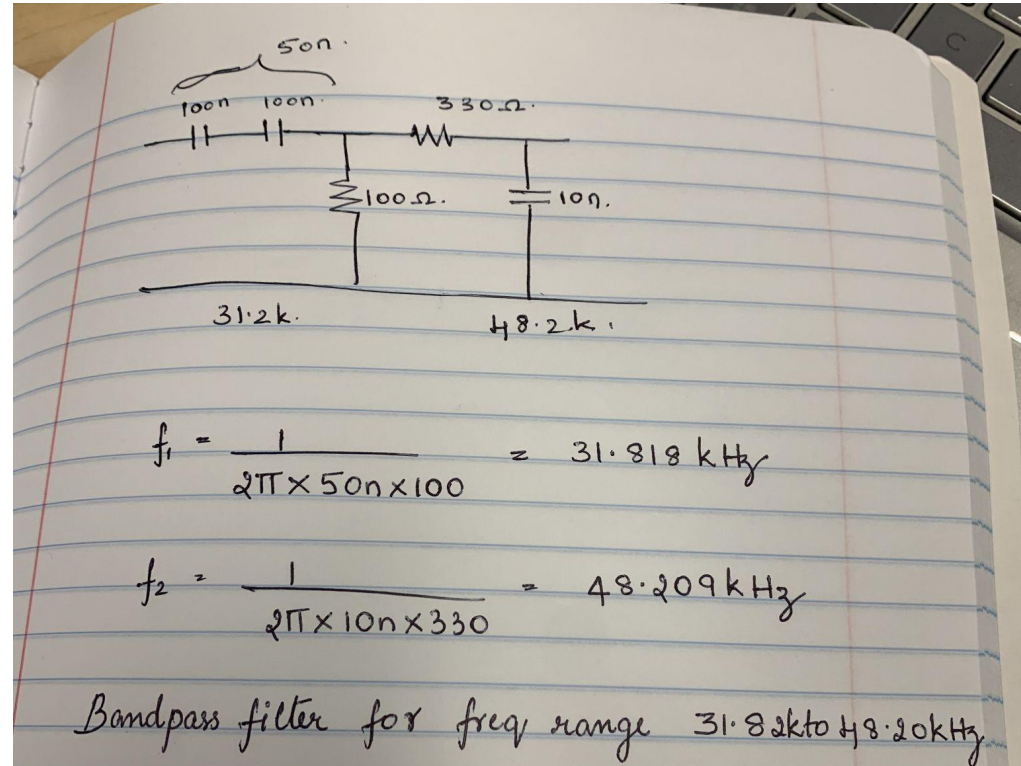 50n.
100n 100n. 330Ω.
100Ω. 10n.
31.2k. 48.2k.
f₁ = 1 / 2π × 50n × 100 = 31.818 kHz
f₂ = 1 / 2π × 10n × 330 = 48.209 kHz
Bandpass filter for freq range 31.82k to 48.20kHz
C